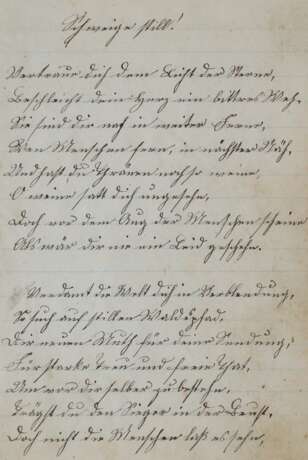 Schweige still!
Vertraue dich dem Licht der Sterne,
Beschleicht dein Herz ein bittres Weh,
Sie sind dir nah in weiter Ferne,
Den Menschen fern, in nächster Näh,
Und hast du Thränen noch so weine,
O weine satt dich ungesehn,
Doch vor dem Aug der Menschen scheine
Als wär dir nie ein Leid geschehn.
Verdamt die Welt dich in Verblendung,
So such auf stillen Waldespfad,
Dir neuen Muth für deine Sendung,
Für starke Treu und freie That,
Um vor dir selber zu bestehn,
Trägst du den Sieger in der Brust,
Doch nicht die Menschen laß es sehn,